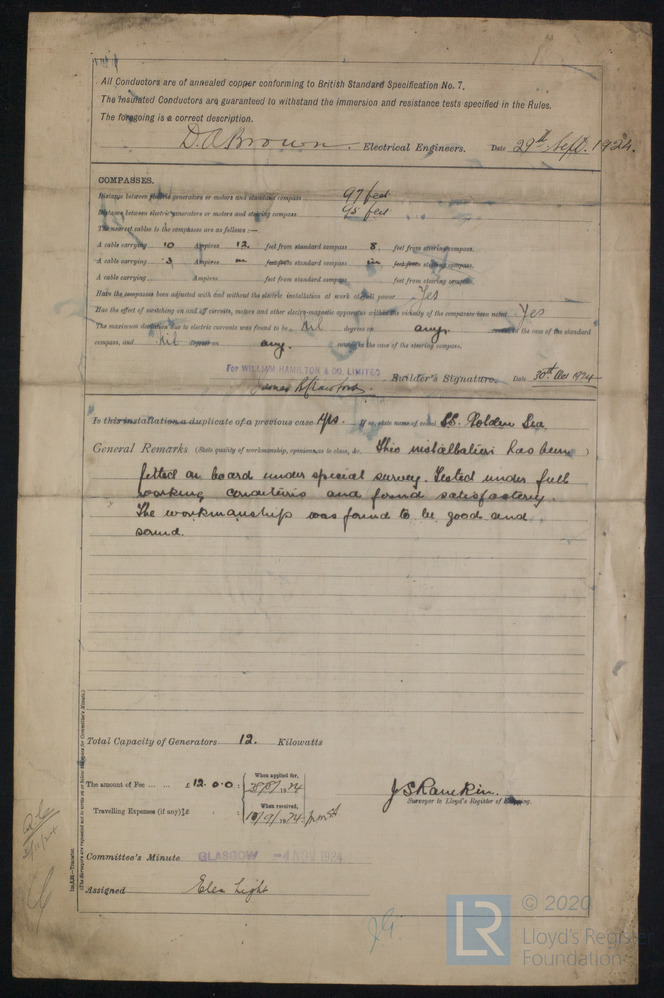 All Conductors are of annealed copper conforming to British Standard Specification No. 7.
The Insulated Conductors are guaranteed to withstand the immersion and resistance tests specified in the Rules.
The foregoing is a correct description.
D. A. Brown Electrical Engineers. Date 29th Sept. 1924.
COMPASSES.
Distance between electric generators or motors and standard compass 97 feet
Distance between electric generators or motors and steering compass 95 feet
The nearest cables to the compasses are as follows:—
A cable carrying 10 Ampères 12 feet from standard compass 8 feet from steering compass.
A cable carrying 3 Ampères in feet from standard compass in feet from steering compass.
A cable carrying Ampères feet from standard compass feet from steering compass.
Have the compasses been adjusted with and without the electric installation at work at full power Yes
Has the effect of switching on and off circuits, motors and other electro-magnetic apparatus within the vicinity of the compasses been noted Yes
The maximum deviation due to electric currents was found to be Nil degrees on any course in the case of the standard
compass, and Nil degrees on any course in the case of the steering compass.
For WILLIAM HAMILTON & CO. LIMITED
Builder's Signature. Date 30th Oct 1924
Is this installation a duplicate of a previous case Yes If so, state name of vessel SS. Golden Sea
General Remarks (State quality of workmanship, opinions as to class, &c. This installation has been )
fitted on board under special survey. Tested under full
working conditions and found satisfactory.
The workmanship was found to be good and
sound.
Total Capacity of Generators 12. Kilowatts
The amount of Fee ... ... £ 12.0.0 :
When applied for,
Travelling Expenses (if any) £ :
When received,
J S Rankin.
Surveyor to Lloyd's Register of Shipping.
Committee's Minute GLASGOW -4 NOV 1924
Assigned Elec Light
(The Surveyors are requested not to write on or below the space for Committee's Minute.)
LR
© 2020
Lloyd's Register
Foundation